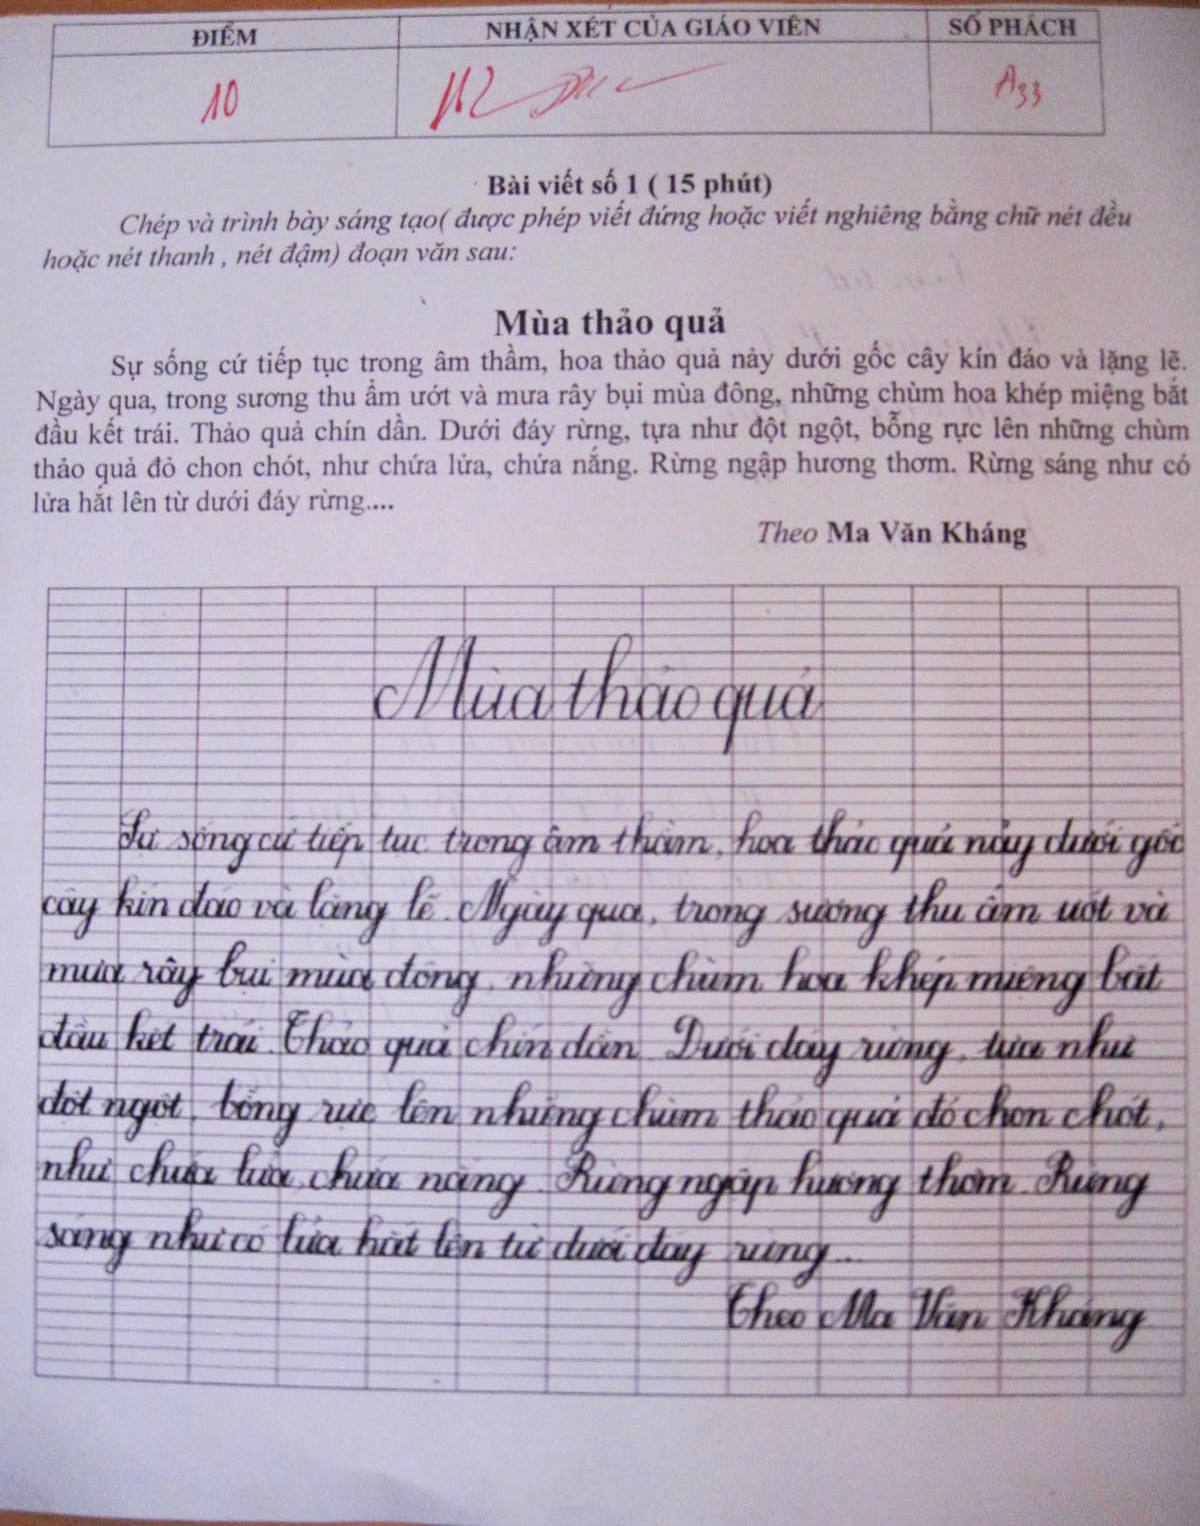 ĐIỂM
NHẬN XÉT CỦA GIÁO VIÊN
SỐ PHÁCH
10
A33
Bài viết số 1 ( 15 phút)
Chép và trình bày sáng tạo( được phép viết đứng hoặc viết nghiêng bằng chữ nét đều
hoặc nét thanh , nét đậm) đoạn văn sau:
Mùa thảo quả
Sự sống cứ tiếp tục trong âm thầm, hoa thảo quả nảy dưới gốc cây kín đáo và lặng lẽ.
Ngày qua, trong sương thu ẩm ướt và mưa rây bụi mùa đông, những chùm hoa khép miệng bắt
đầu kết trái. Thảo quả chín dần. Dưới đáy rừng, tựa như đột ngột, bỗng rực lên những chùm
thảo quả đỏ chon chót, như chứa lửa, chứa nắng. Rừng ngập hương thơm. Rừng sáng như có
lửa hắt lên từ dưới đáy rừng....
Theo Ma Văn Kháng
Mùa thảo quả
Sự sống cứ tiếp tục trong âm thầm, hoa thảo quả nảy dưới gốc
cây kín đáo và lặng lẽ. Ngày qua, trong sương thu ẩm ướt và
mưa rây bụi mùa đông, những chùm hoa khép miệng bắt
đầu kết trái. Thảo quả chín dần. Dưới đáy rừng, tựa như
đột ngột, bỗng rực lên những chùm thảo quả đỏ chon chót,
như chứa lửa, chứa nắng. Rừng ngập hương thơm. Rừng
sáng như có lửa hắt lên từ dưới đáy rừng...
Theo Ma Văn Kháng